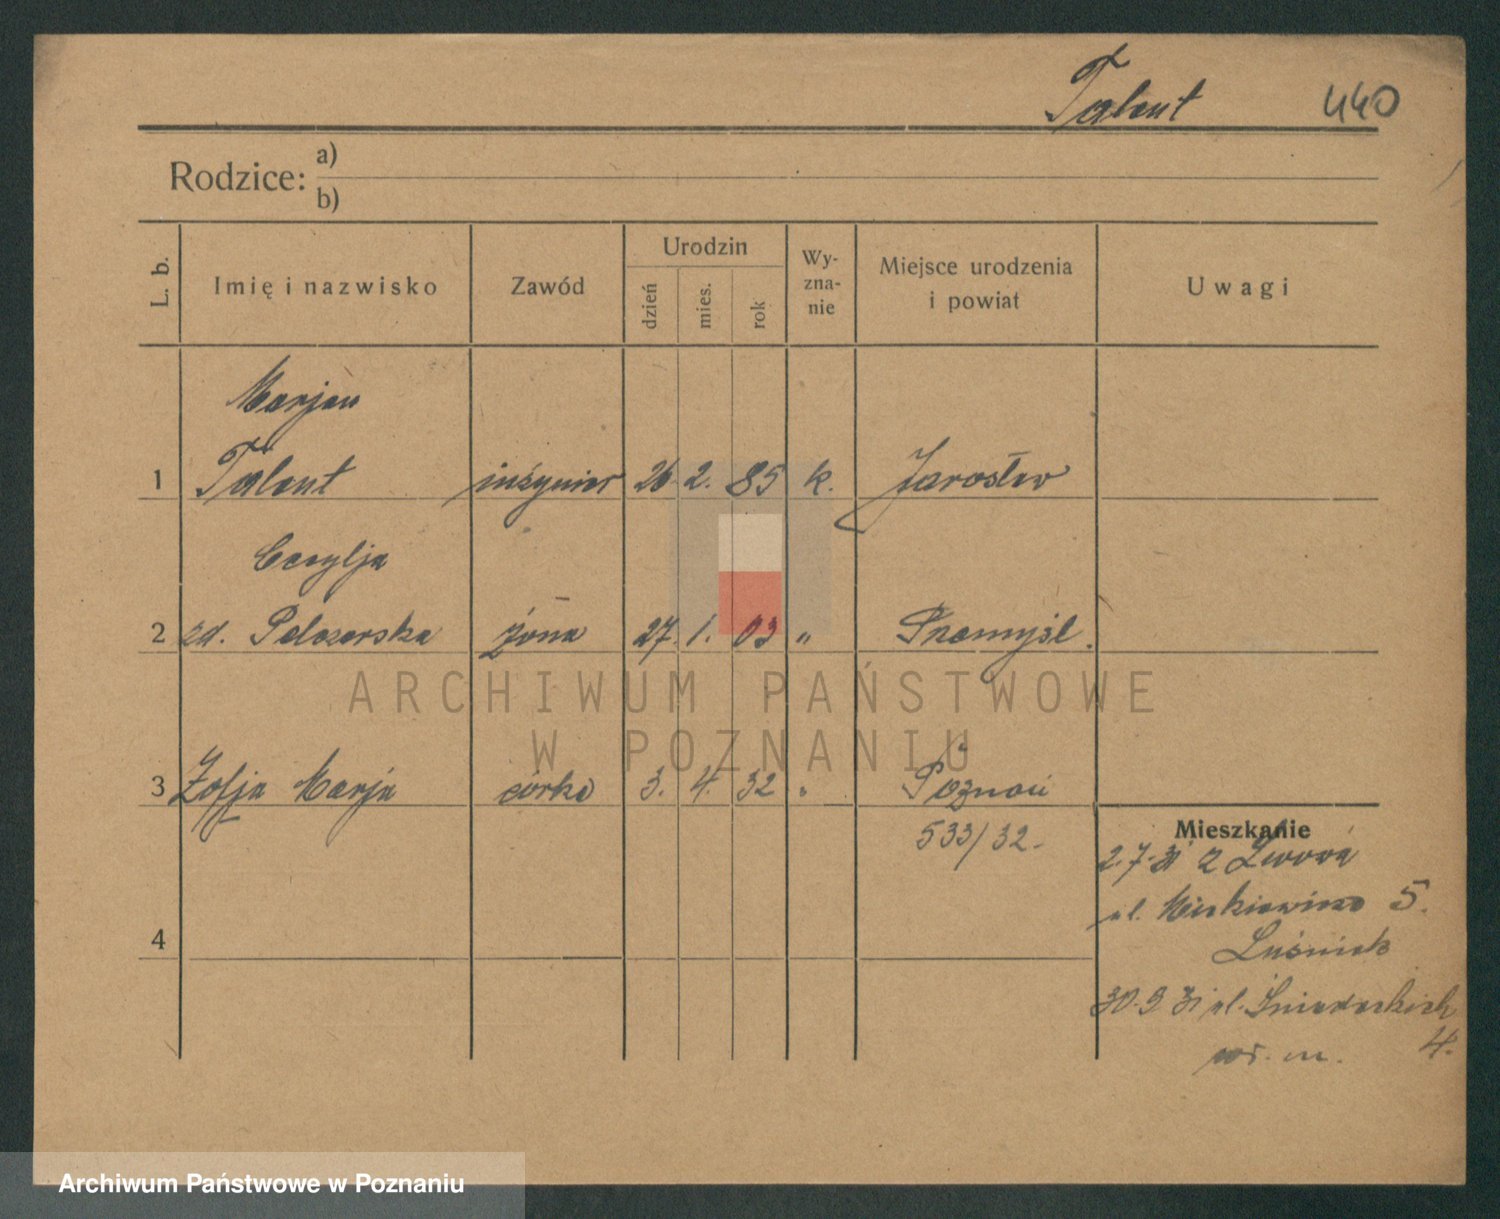 Talent 440
Rodzice: a)
b)
L. b. Imię i nazwisko Zawód Urodzin dzień mies. rok Wy-zna-nie Miejsce urodzenia i powiat Uwagi
Marjan
1 Talent inżynier 26 2. 85 k. Jarosław
Cecylja
2 zd. Pelczarska żona 27. 1. 03 „ Przemyśl.
ARCHIWUM PAŃSTWOWE
W POZNANIU
3 Zofja Marja córka 3. 4. 32 „ Poznań
533/32.
Mieszkanie
2.7.31 z Lwowa
ul. Mickiewicza 5.
4
30.9 31 ul. Śniadeckich
4.
Archiwum Państwowe w Poznaniu